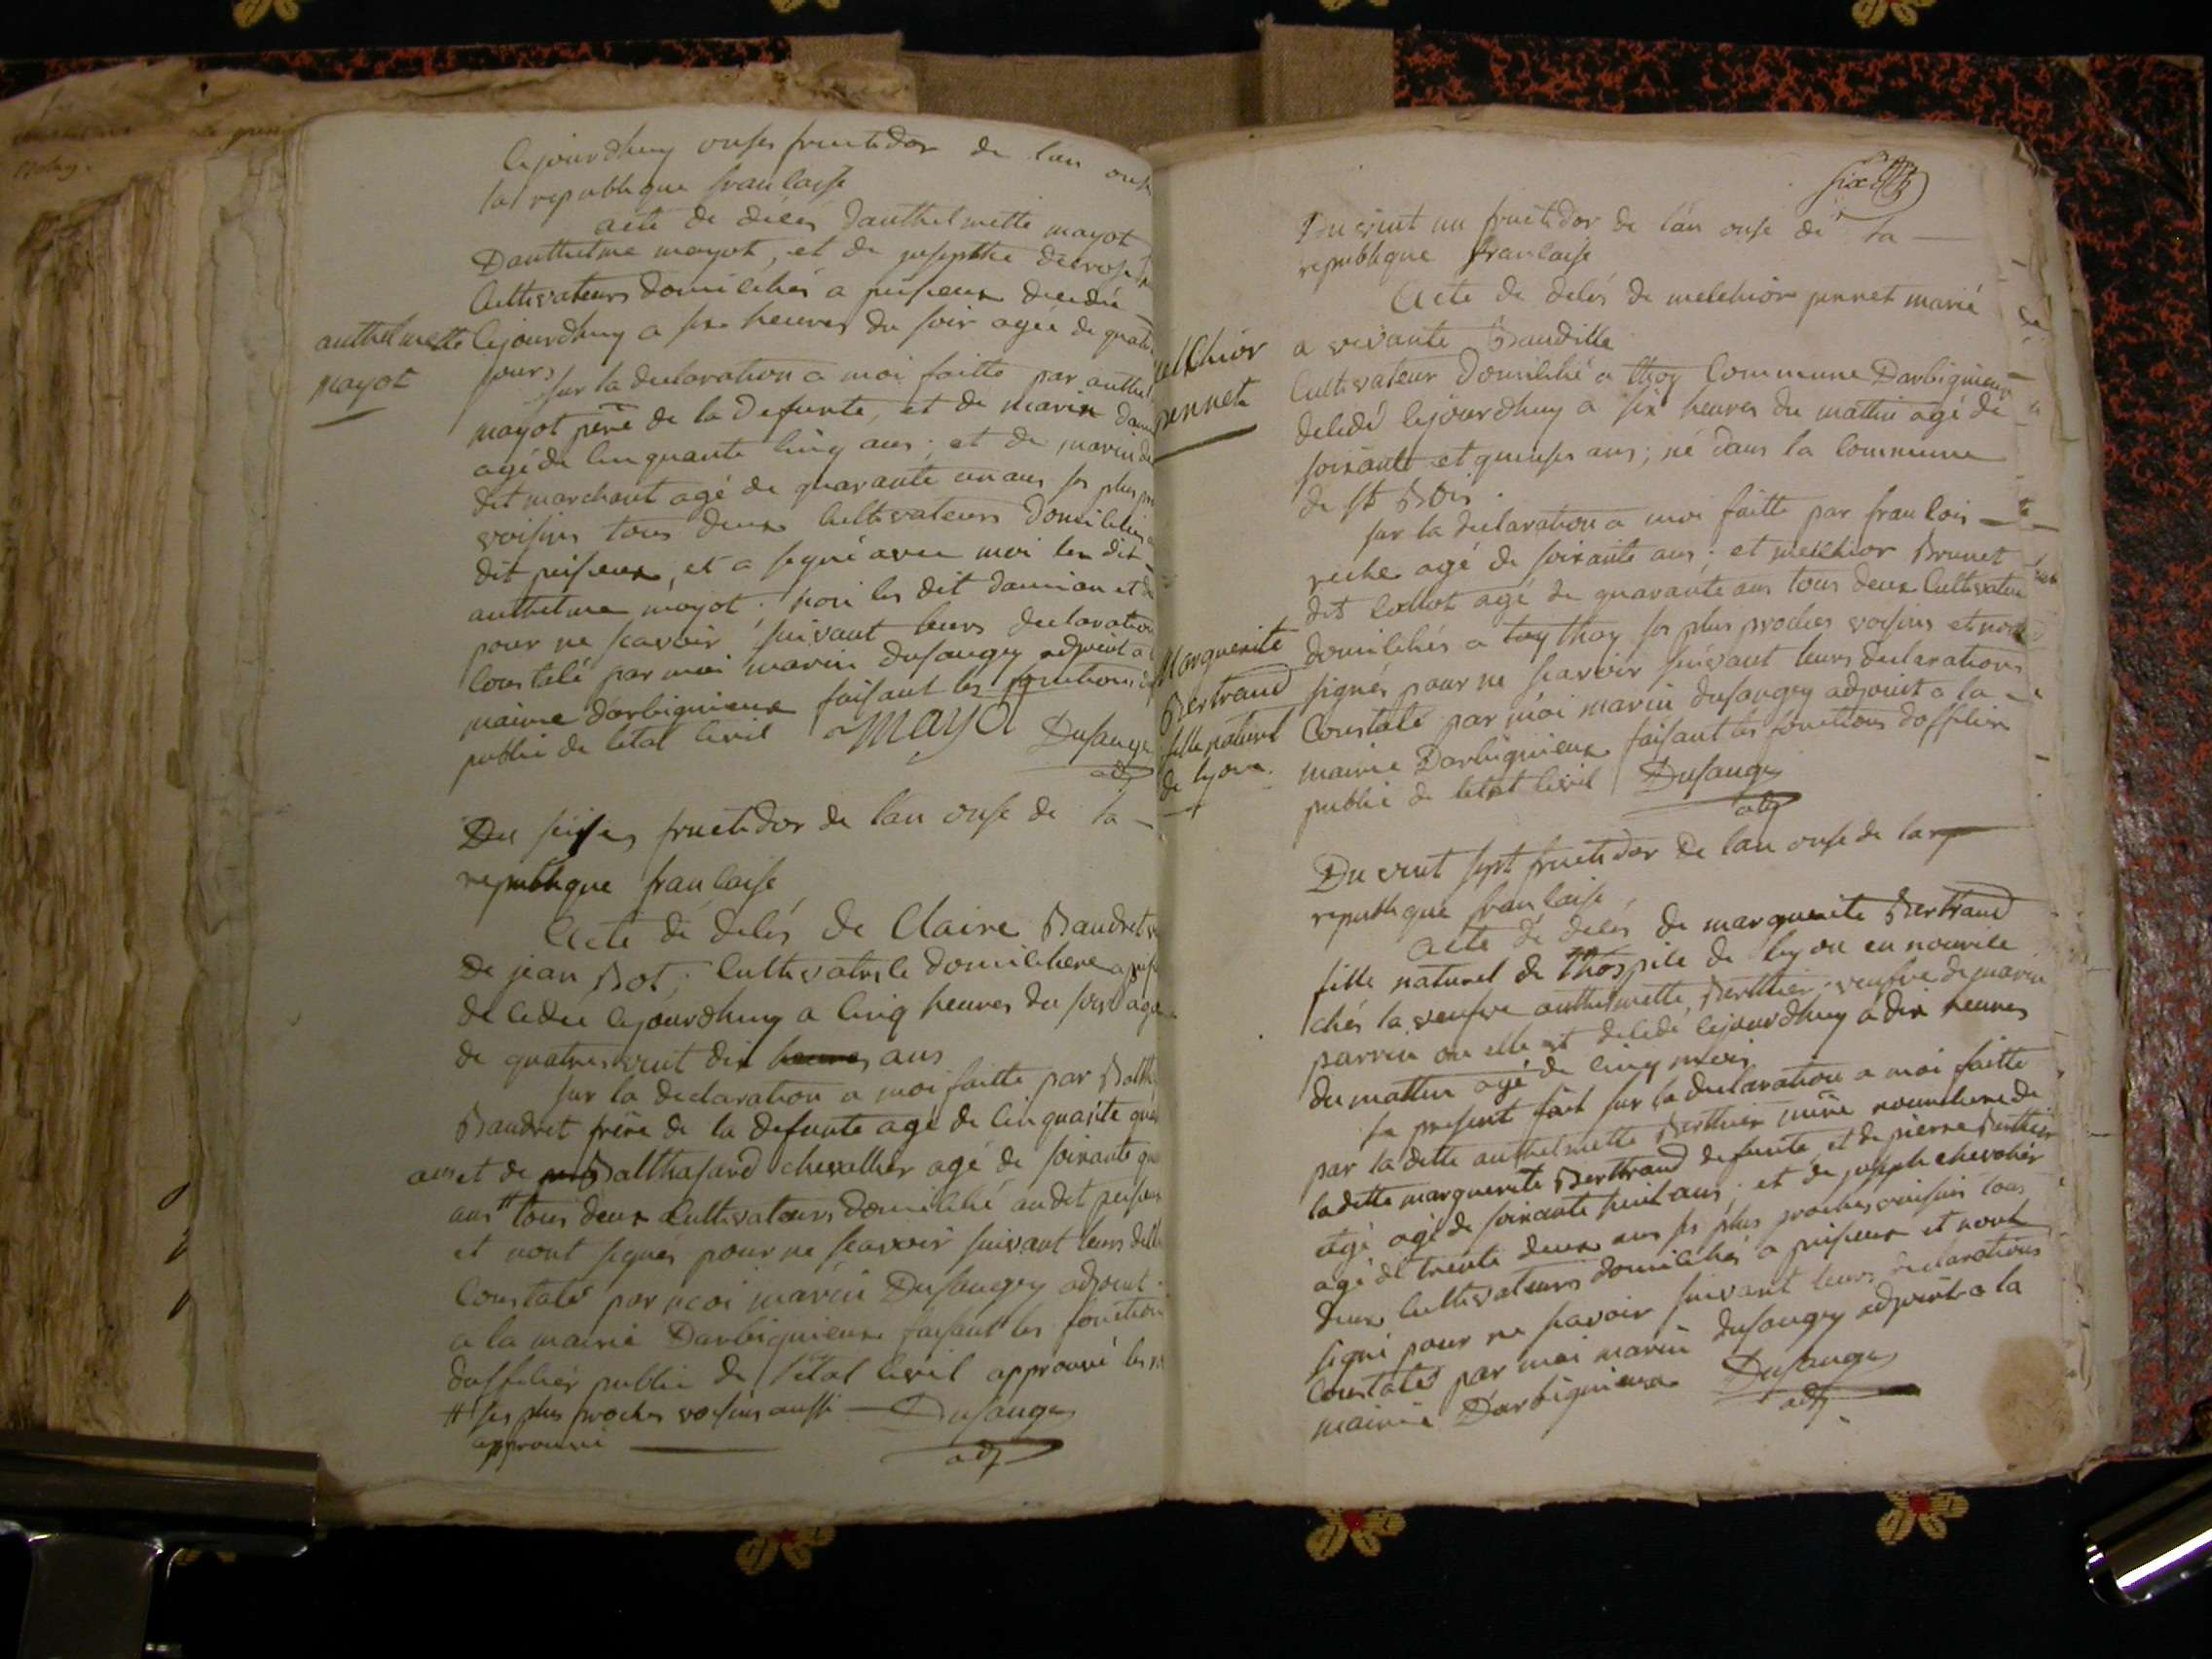 lejourdhuy onses fructidor de lan onse
la republique francaise
acte de décés danthelmette mayot
Danthelme mayot, et de josepthe decrose
Cultivateurs domiciliés a peisieux decedée
lejourdhuy a six heures du soir agée de quatre
jours
anthelmette
mayot
sur la declaration a moi faitte par anthel
mayot pére de la defunte, et de marin dam
agé de cinquante cinq ans; et de marin de
dit marchant agé de quarante un ans ses plus pro
voisins tous deux Cultivateurs domiciliés a
dit peisieux, et a signé avec moi le dit
anthelme mayot. non les dit damian et de
pour ne scavoir suivant leurs declaration
Constaté par moi marin dusaugey adjoint a
mairie darbignieux faisant les fonctions d
public de letat Civil Mayot Dusauge
adj
Du seises fructidor de lan onse de la
republique francaise
Acte de décés de Claire Baudret v
de jean Bot; Cultivatrice domiciliere a peisi
décedée lejourdhuy a cinq heures du soir agée
de quatres vint dix heures ans
sur la declaration a moi faitte par Balth
Baudret frére de la defunte agé de cinquante quat
ans et de Balthasard chevallier agé de soixante qu
ans # tous deux Cultivateurs domicilié audit peisieux
et nont signés pour ne scavoir suivant leurs decl
Constaté par moi marin Dusaugey adjoint
a la mairie Darbignieux faisant les fonction
dofficier public de l'état Civil approuvé les m
# ses plus proches voisins aussi Dusauge
approuvé adj
six
Du vint un fructidor de lan onse de la
republique francaise
Acte de décés de melchior pernet marié
a vivante Baudille
melchior
pernet
Cultivateur domicilié a thoy Commune Darbignieux
décedé lejourdhuy a six heures du mattin agé de
soixante et quinses ans; né dans la Commune
de St Bois.
sur la declaration a moi faitte par francois
reche agé de soixante ans; et melchior Brunet
dit collot agé de quarante ans tous deux Cultivateu
domiciliés a toy thoy ses plus proches voisins et nont
signés pour ne scavoir suivant leurs declarations
Constaté par moi marin dusaugey adjoint a la
mairie Darbignieux faisant les fonctions dofficier
public de letat Civil Dusauge
adj
Marguerite
Bertrand
fille naturel
de lyon.
Du vint sept fructidor de lan onse de la
republique francaise
acte de décés de marguerite Bertrand
fille naturel de lhospice de lyon en nourice
chés la veufve anthelmette Berthier veufve de marin
parrin ou elle est décedé lejourdhuy a dix heures
du mattin agé de cinq mois
le present fait sur la declaration a moi faitte
par la ditte anthelmette Berthier mère nourriciere de
laditte marguerite Bertrand defunte, et de pierre Berthier
agé agé de soixante huit ans; et de joseph chevalier
agé de trente deux ans ses plus proches voisins tous
deux Cultivateurs domiciliés a peisieux et nont
signé pour ne scavoir suivant leurs declarations
Constaté par moi marin dusaugey adjoint a la
mairie Darbignieux Dusauge
adj